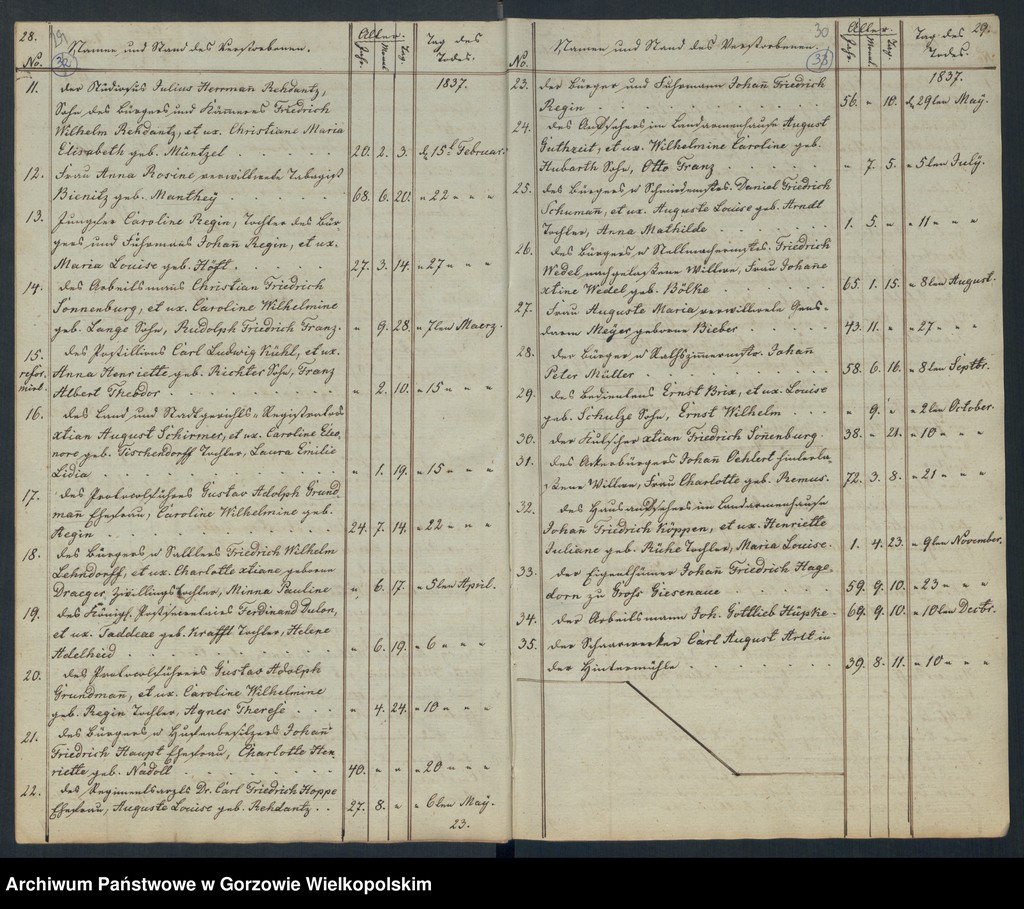 28.
29
32
No.
Namen und Stand des Verstorbenen.
Alter.
Jahr. Monat. Tag.
Tag des
Todes.
1837.
11. der Studiosus Julius Herrmañ Rehdantz,
Sohn des Bürgers und Kämmerers Friedrich
Wilhelm Rehdantz, et ux. Christiane Maria
Elisabeth geb. Müntzel 20. 2. 3. d. 15t Februar.
12. Frau Anna Rosine verwittwete Tabagist
Bienitz geb. Manthey 68. 6. 20. " 22 " " "
13. Jungfer Caroline Regin, Tochter des Bür-
gers und Fuhrmañs Johañ Regin, et ux.
Maria Louise geb. Höft 27. 3. 14. " 27 " " "
14. des Arbeitsmañs Christian Friedrich
Sonnenburg, et ux. Caroline Wilhelmine
geb. Lange Sohn, Rudolph Friedrich Franz. " 9. 28. " 7ten Maerz.
15. des Postillions Carl Ludwig Kühl, et ux.
refor- Anna Henriette geb. Richter Sohn, Franz
mirt. Albert Theodor " 2. 10. " 15 " " "
16. des Land und Stadtgerichts-Registrators
xtian August Schirmer, et ux. Caroline Eleo-
nore geb. Tischendorff Tochter, Laura Emilie
Lidia " 1. 19. " 15 " " "
17. des Protocolführers Gustav Adolph Grund-
mañ Ehefrau, Caroline Wilhelmine geb.
Regin 24. 7. 14. " 22 " " "
18. des Bürgers u Sattlers Friedrich Wilhelm
Lehndorff, et ux. Charlotte xtiane geborene
Draeger, Zwillings Tochter, Minna Pauline " 6. 17. " 5ten April.
19. des Königl. Postsecretairs Ferdinand Dulon,
et ux. Taddeae geb. Krafft Tochter, Helene
Adelheid " 6. 19. " 6 " " "
20. des Protocolführers Gustav Adolph
Grundmañ, et ux. Caroline Wilhelmine
geb. Regin Tochter, Agnes Therese " 4. 24. " 10 " " "
21. des Bürgers u Hufenbesitzers Johañ
Friedrich Haupt Ehefrau, Charlotte Hen-
riette geb. Nadoll 40. " " " 20 " " "
22. des Regimentsarzts Dr. Carl Friedrich Hoppe
Ehefrau, Auguste Louise geb. Rehdantz 27. 8. " " 6ten May.
23.
29.
30
33
No.
Namen und Stand des Verstorbenen.
Alter.
Jahr. Monat. Tag.
Tag des
Todes.
1837.
23. der Bürger und Fuhrmañ Johañ Friedrich
Regin 56. " 10. d. 29ten May.
24. des Aufsehers im Landarmenhause August
Guthzeit, et ux. Wilhelmine Caroline geb.
Hubarth Sohn, Otto Franz " 7. 5. " 5ten July.
25. des Bürgers u Schmiedemstrs. Daniel Friedrich
Schumañ, et ux. Auguste Louise geb. Arndt
Tochter, Anna Mathilde 1. 5. " " 11 " " "
26. des Bürgers u Stellmachermstrs. Friedrich
Wedel nachgelaßene Wittwe, Frau Johañe
xtine Wedel geb. Bölke 65. 1. 15. " 8ten August.
27. Frau Auguste Maria verwittwete Gens-
darm Meyer geborene Bieber 43. 11. " " 27 " " "
28. der Bürger u Rathszimermstr. Johañ
Peter Müller 58. 6. 16. " 8ten Septbr.
29. des Bedienten Ernst Brix, et ux. Louise
geb. Schulze Sohn, Ernst Wilhelm " 9. " " 2ten October.
30. der Kutscher xtian Friedrich Soñenburg. 38. " 21. " 10 " " "
31. des Akerbürgers Johañ Oehlert hinterla-
ßene Wittwe, Frau Charlotte geb. Remus. 72. 3. 8. " 21 " " "
32. des Hausaufsehers im Landarmenhause
Johañ Friedrich Köppen, et ux. Henriette
Juliane geb. Rühe Tochter, Maria Louise. 1. 4. 23. " 9ten November.
33. der Eigenthümer Johañ Friedrich Hage-
dorn zu Groß Giesenaue 59. 9. 10. " 23 " " "
34. der Arbeitsmann Joh. Gottlieb Hüpke 69. 9. 10. " 10ten Decbr.
35. der Scharwerker Carl August Arlt in
der Hintermühle 39. 8. 11. " 10 " " "
Archiwum Państwowe w Gorzowie Wielkopolskim